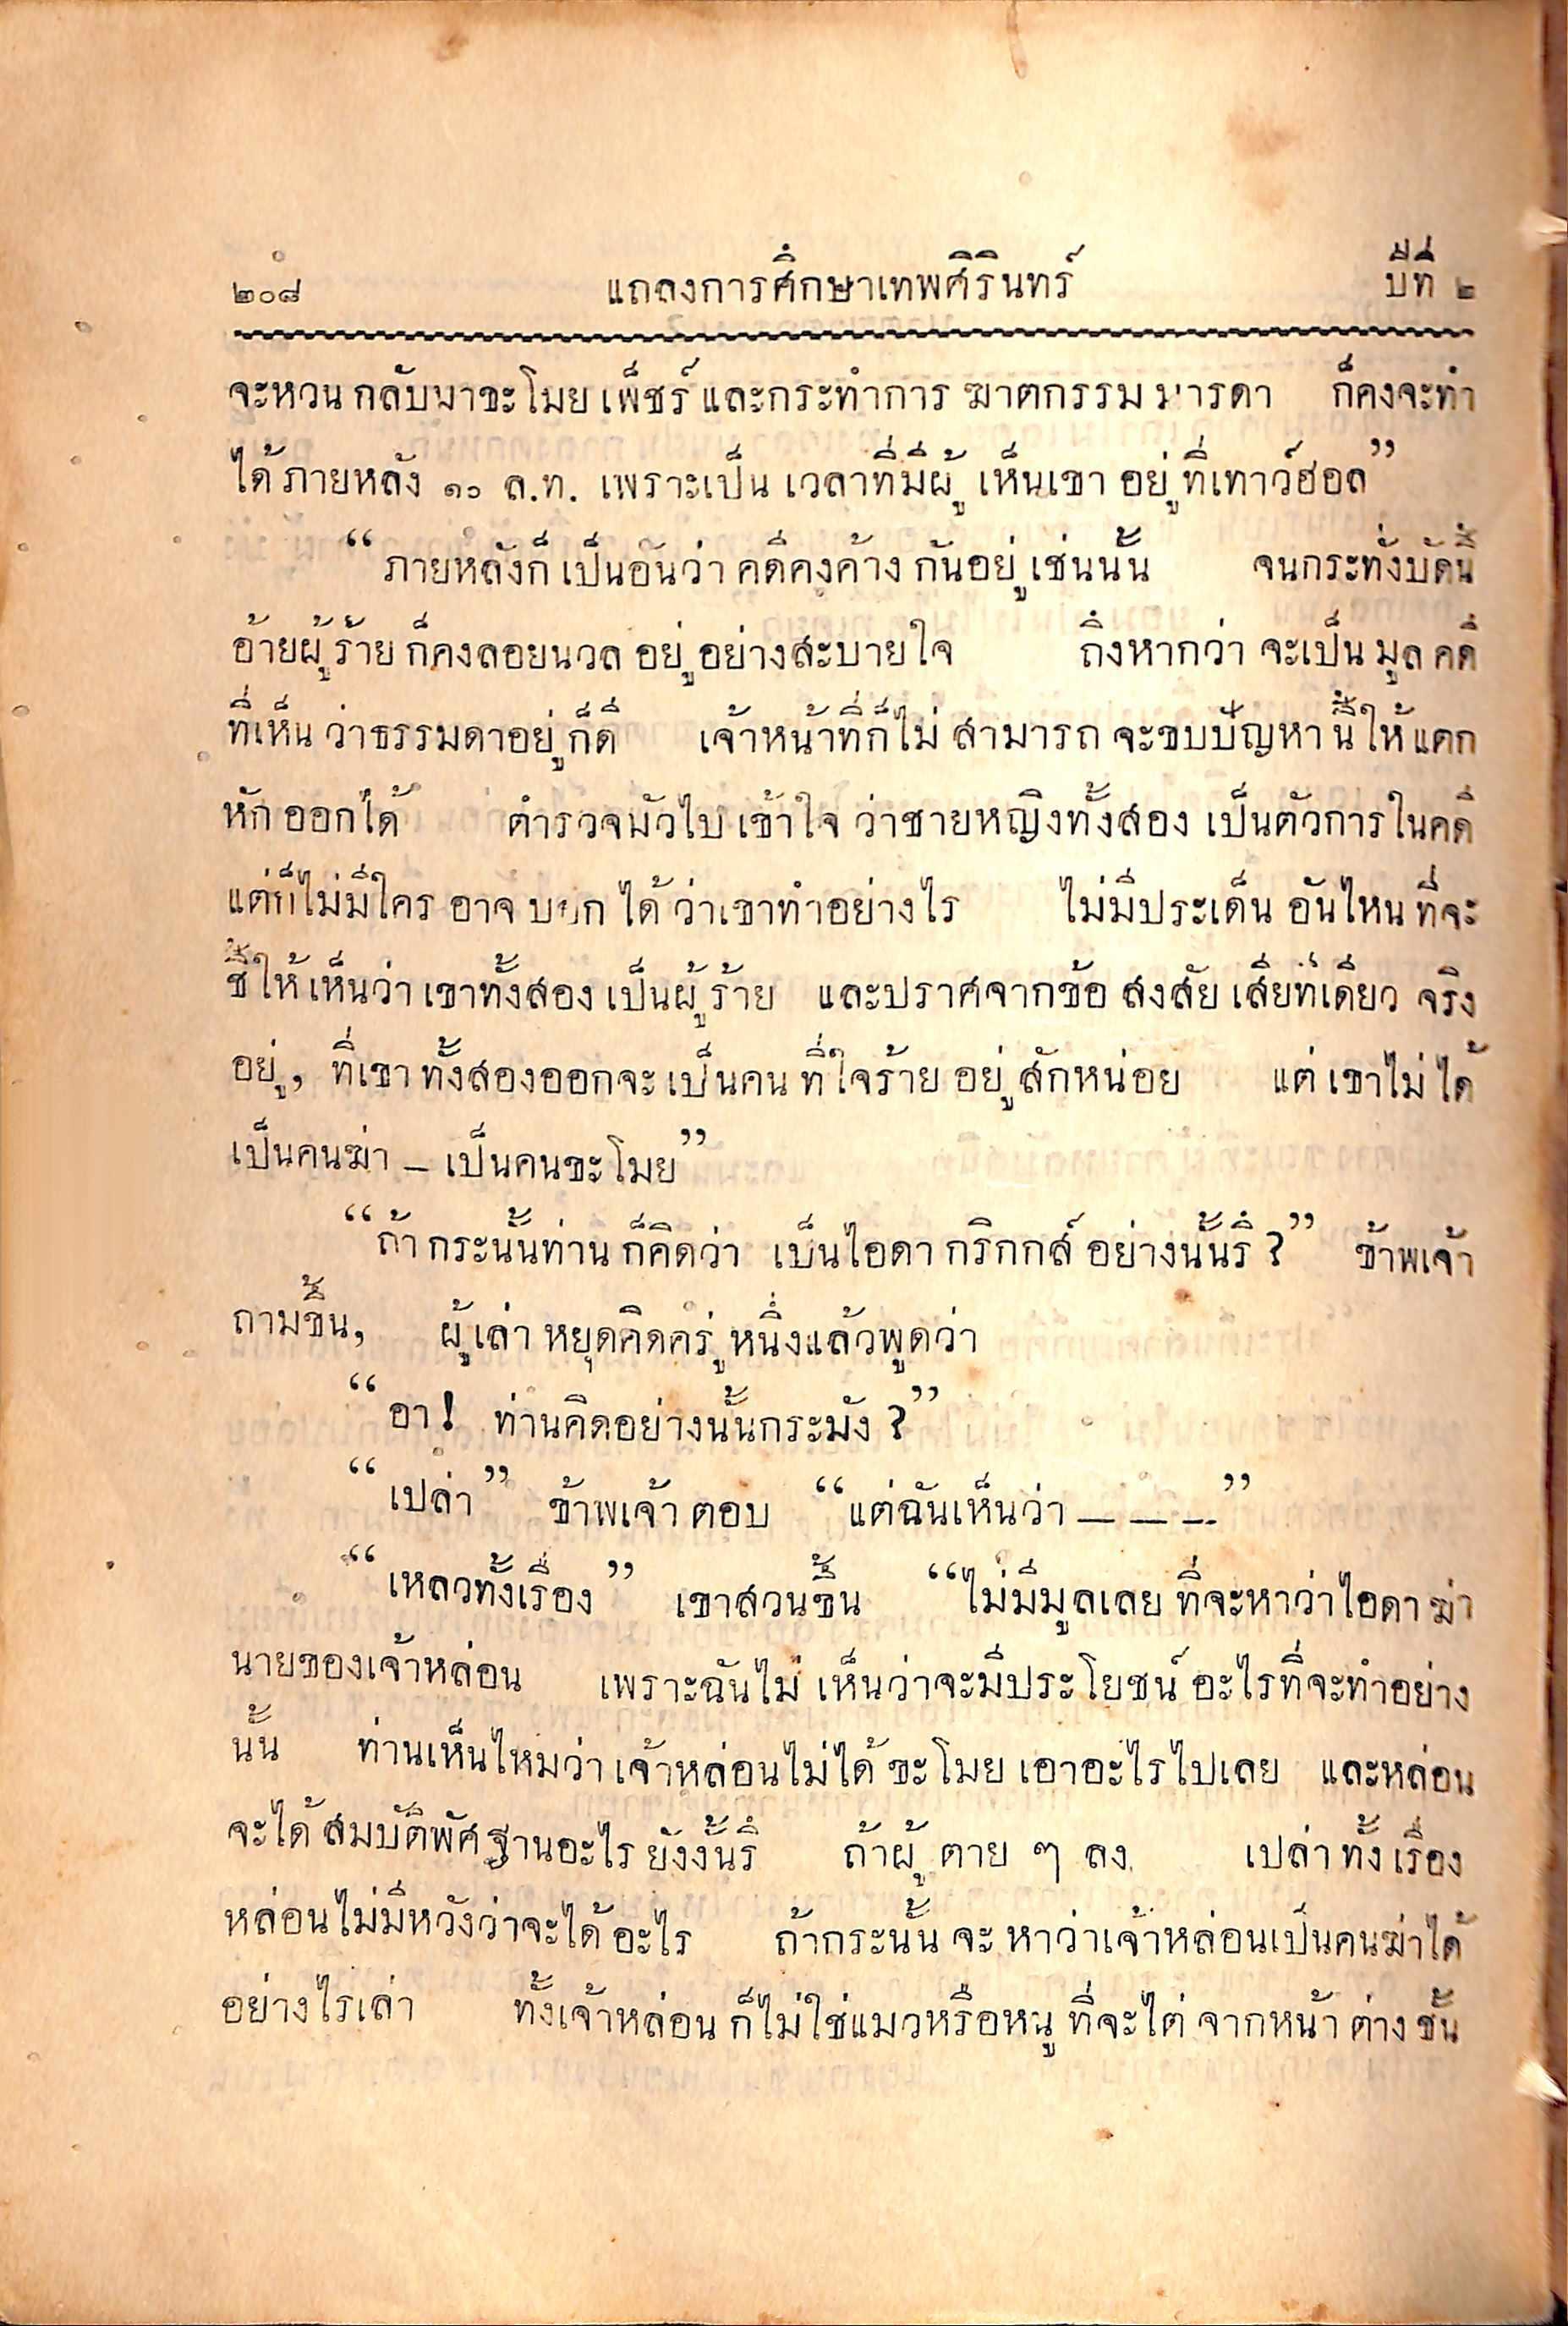 ๒๐๘ แถลงการศึกษาเทพศิรินทร์ ปีที่ ๒
จะหวนกลับมาขะโมยเพ็ชร์และกระทำการฆาตกรรมมารดา ก็คงจะทำ
ได้ภายหลัง ๑๐ ล.ท. เพราะเป็นเวลาที่มีผู้เห็นเขาอยู่ที่เทาว์ฮอล”
“ภายหลังก็เป็นอันว่าคดีคงค้างกันอยู่เช่นนั้น จนกระทั่งบัดนี้
อ้ายผู้ร้ายก็คงลอยนวลอยู่อย่างสะบายใจ ถึงหากว่าจะเป็นมูลคดี
ที่เห็นว่าธรรมดาอยู่ก็ดี เจ้าหน้าที่ก็ไม่สามารถจะขบปัญหานี้ให้แตก
หักออกได้ ตำรวจมัวไปเข้าใจว่าชายหญิงทั้งสองเป็นตัวการในคดี
แต่ก็ไม่มีใครอาจบอกได้ว่าเขาทำอย่างไร ไม่มีประเด็นอันไหนที่จะ
ชี้ให้เห็นว่าเขาทั้งสองเป็นผู้ร้าย และปราศจากข้อสงสัยเสียทีเดียว จริง
อยู่, ที่เขาทั้งสองออกจะเป็นคนที่ใจร้ายอยู่สักหน่อย แต่เขาไม่ได้
เป็นคนฆ่า – เป็นคนขะโมย”
“ถ้ากระนั้นท่านก็คิดว่า เป็นไอดา กริกกส์ อย่างนั้นรึ?” ข้าพเจ้า
ถามขึ้น, ผู้เล่าหยุดคิดครู่หนึ่งแล้วพูดว่า
“อา! ท่านคิดอย่างนั้นกระมัง?”
“เปล่า” ข้าพเจ้าตอบ “แต่ฉันเห็นว่า – – –”
“เหลวทั้งเรื่อง” เขาสวนขึ้น “ไม่มีมูลเลยที่จะหาว่าไอดาฆ่า
นายของเจ้าหล่อน เพราะฉันไม่เห็นว่าจะมีประโยชน์อะไรที่จะทำอย่าง
นั้น ท่านเห็นไหมว่าเจ้าหล่อนไม่ได้ขะโมยเอาอะไรไปเลย และหล่อน
จะได้สมบัติพัศฐานอะไรยังงั้นรึ ถ้าผู้ตาย ๆ ลง เปล่าทั้งเรื่อง
หล่อนไม่มีหวังว่าจะได้อะไร ถ้ากระนั้นจะหาว่าเจ้าหล่อนเป็นคนฆ่าได้
อย่างไรเล่า ทั้งเจ้าหล่อนก็ไม่ใช่แมวหรือหนูที่จะไต่จากหน้าต่างชั้น